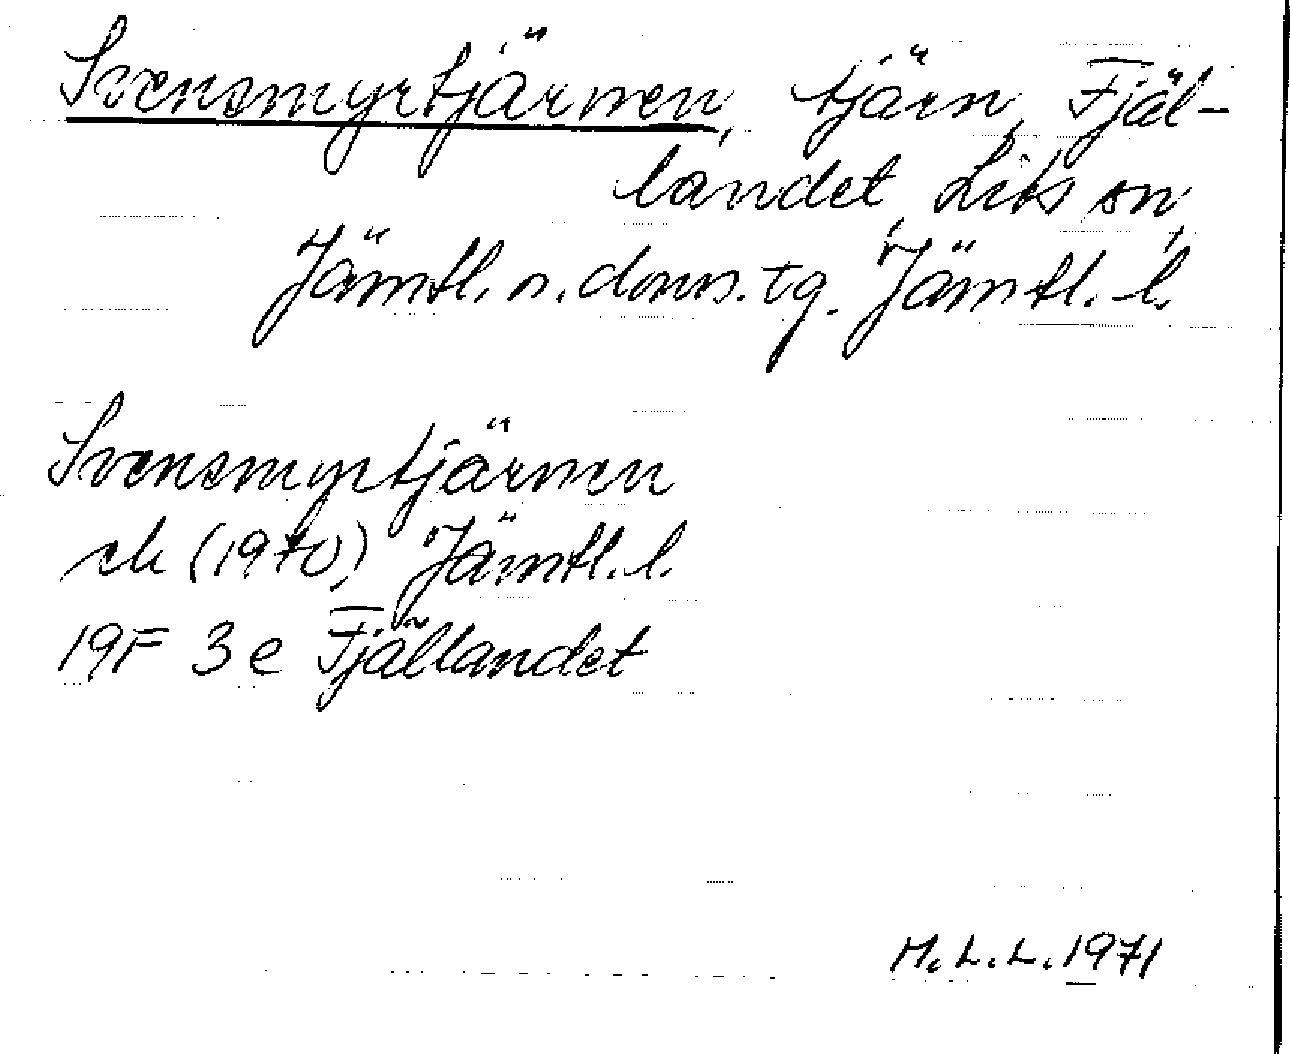 Svensmyrtjärnen, tjärn, Fjäl-
landet, Lits sn,
Jämtl. n. doms. tg. Jämtl. l.
Svensmyrtjärnen
ek (1970) Jämtl. l.
19F 3e Fjällandet
M. L. L. 1971